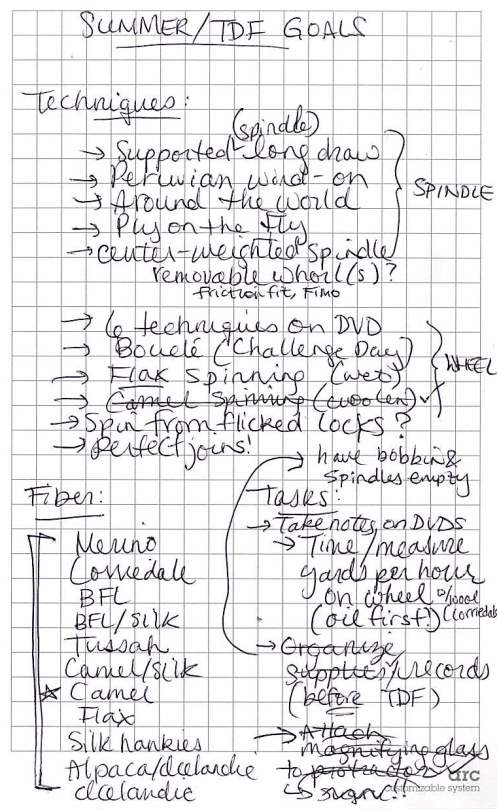 SUMMER/TDF GOALS
Techniques:
(spindle)
→ Supported long draw
→ Peruvian wind-on
→ Around the world
→ Ply on the fly
→ center-weighted spindle
removable whorl(s)?
friction fit, Fimo
SPINDLE
→ 6 techniques on DVD
→ Bouclé (Challenge Day)
→ Flax Spinning (wet)
→ Camel Spinning (woolen) ✓
→ Spin from flicked locks?
→ Perfect joins!
WHEEL
Fiber:
Merino
Corriedale
BFL
BFL/silk
Tussah
Camel/Silk
☆ Camel
Flax
Silk hankies
Alpaca/Icelandic
Icelandic
→ have bobbins &
spindles empty
Tasks:
→ Take notes on DVDS
→ Time/measure
yards per hour
on wheel
(oil first!) (corriedale
→ Organize
supplies/records
(before TDF)
→ Attach
magnifying glass
to protractor
↳ signe!!
arc
customizable system